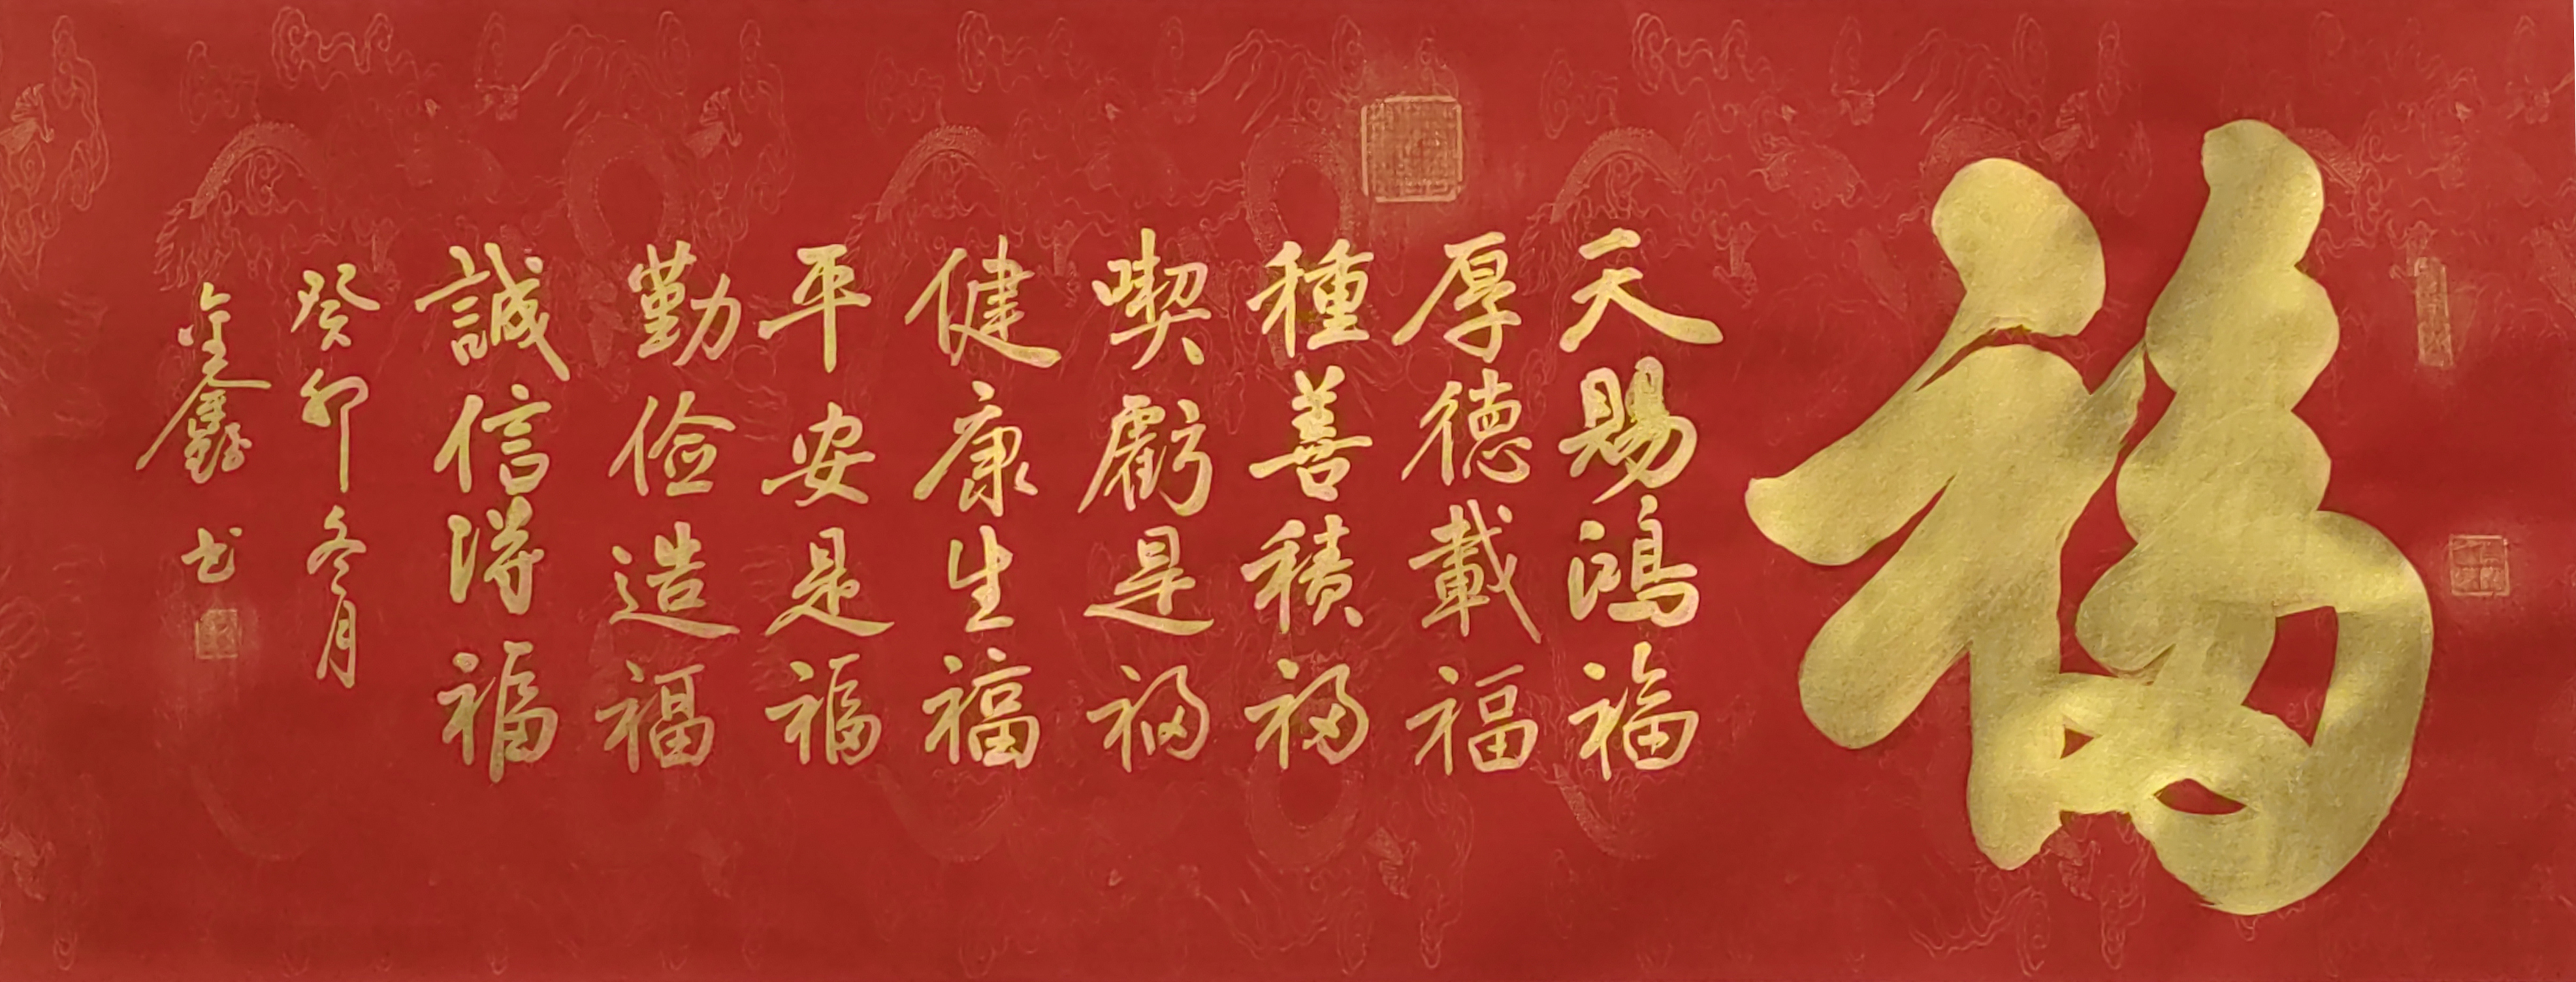 福
天賜鴻福
厚德載福
種善積福
喫虧是福
健康生福
平安是福
勤俭造福
誠信得福
癸卯冬月
鑫书